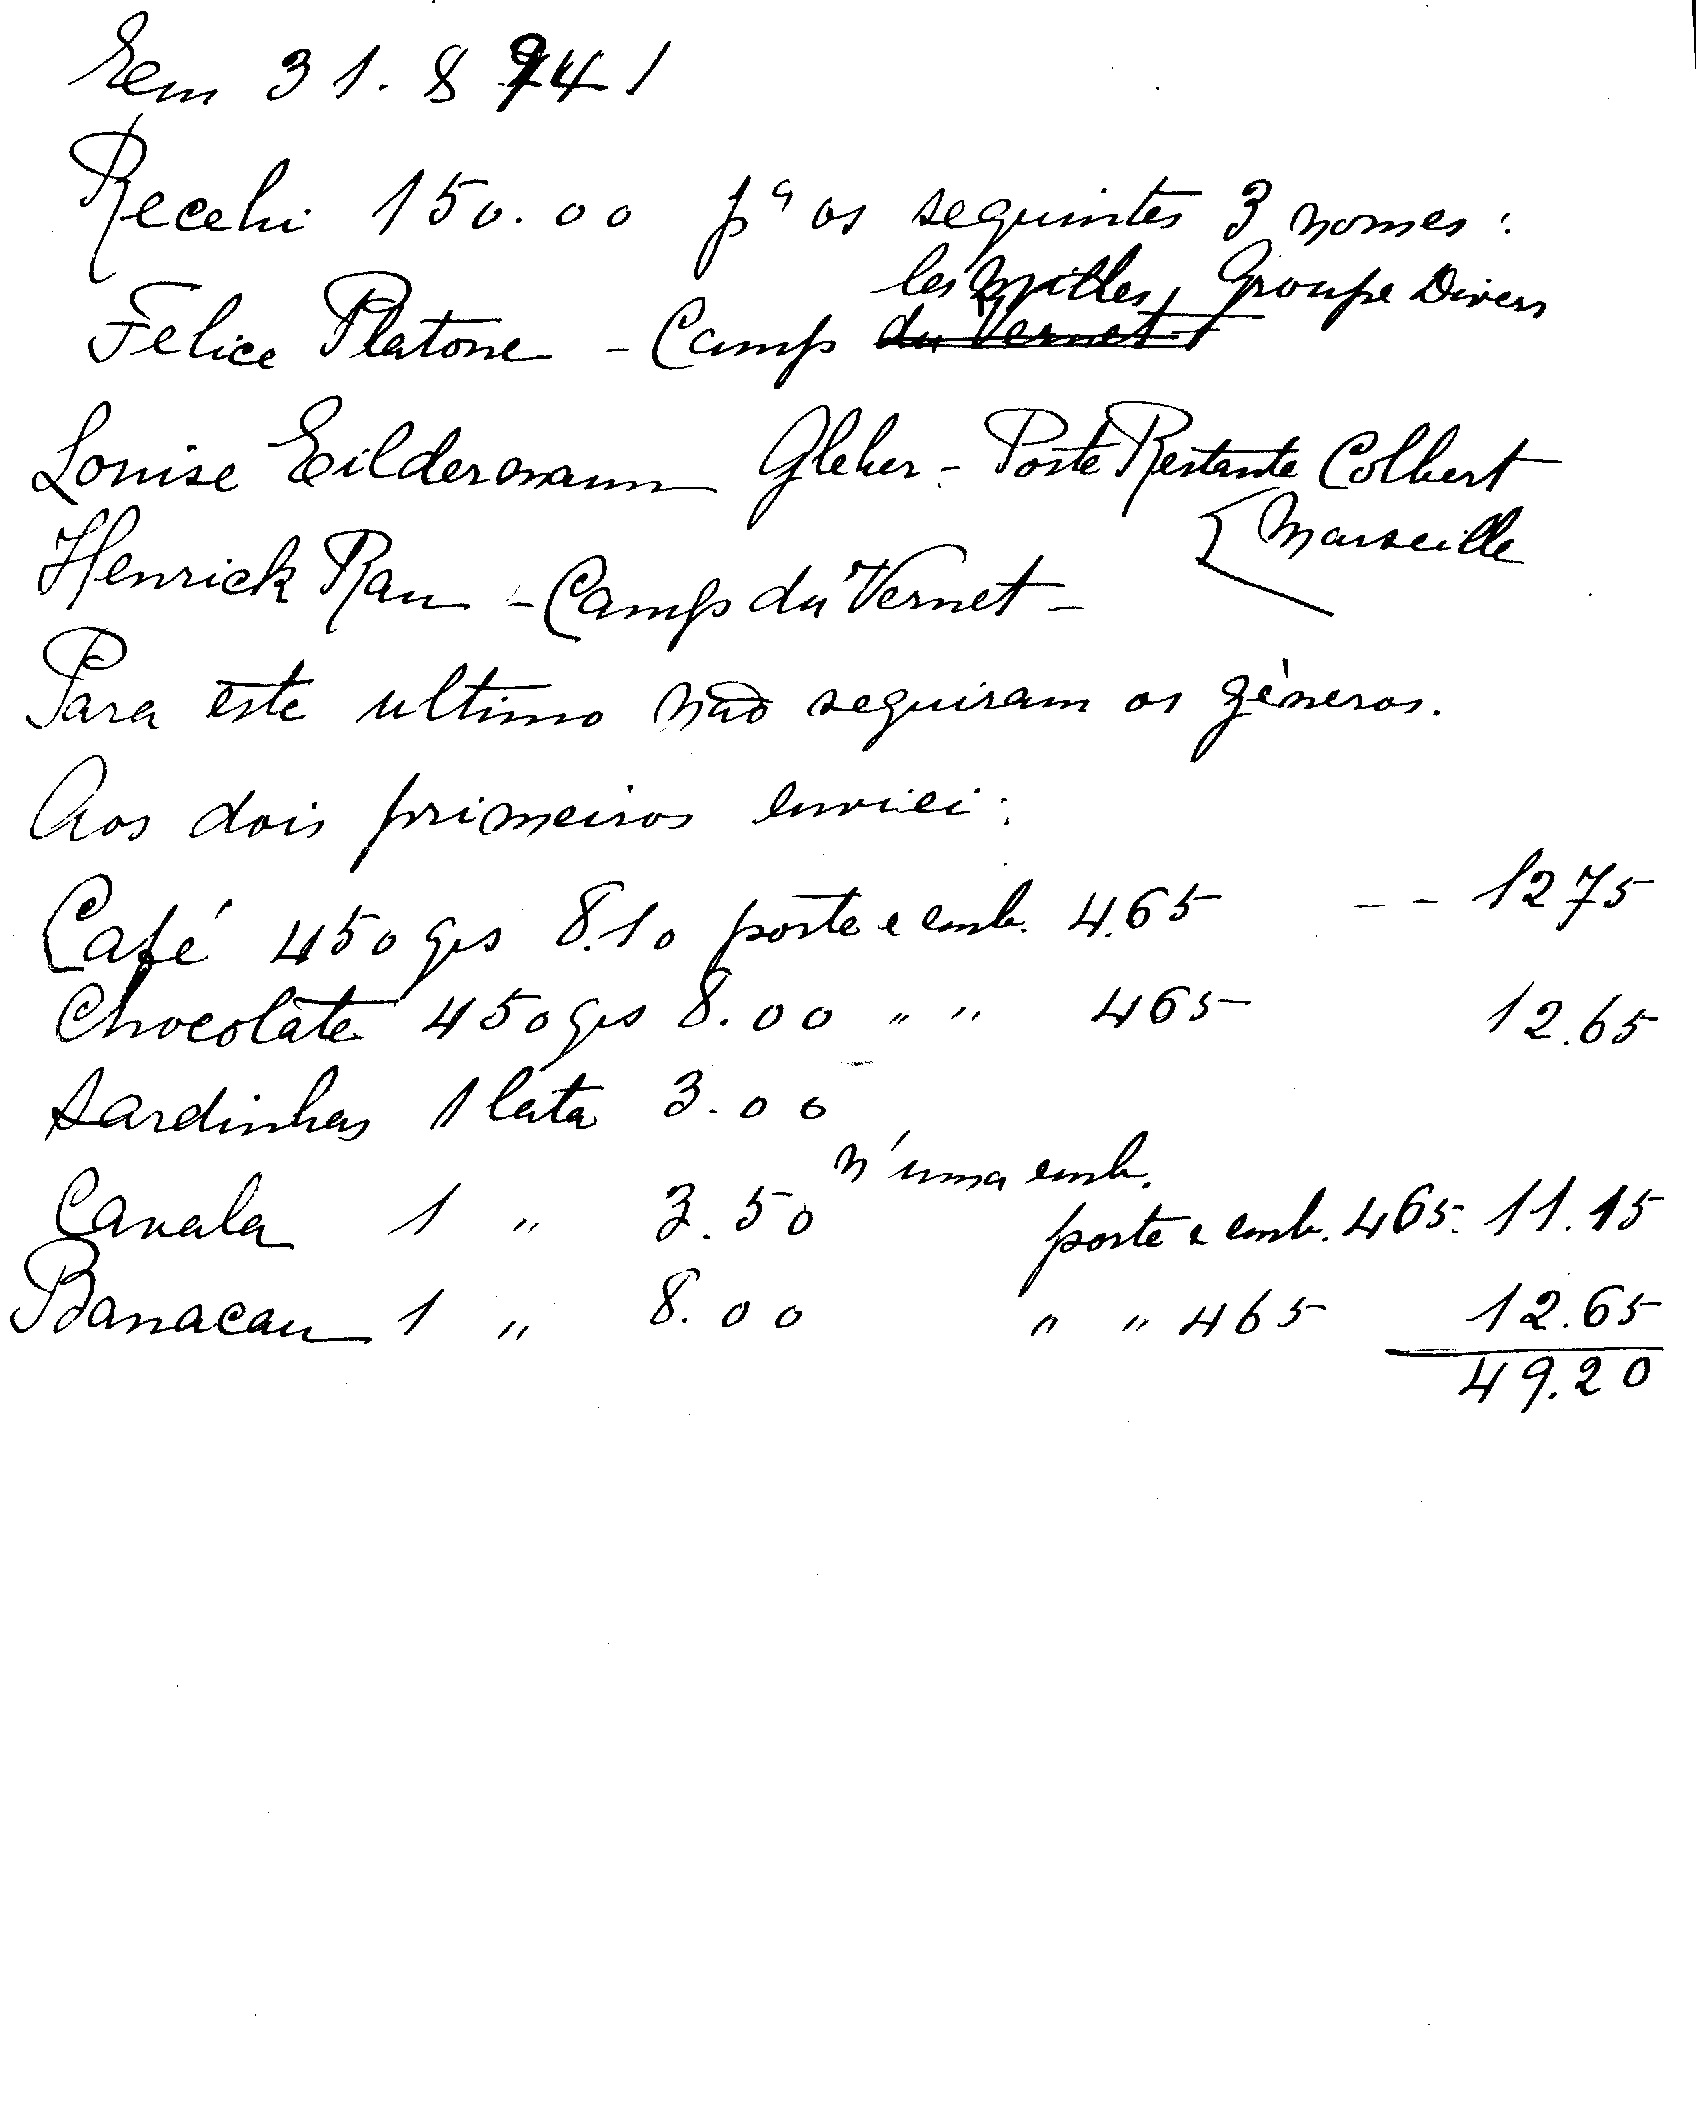 Em 31.8 941
Recebi 150.00 pª os seguintes 3 nomes:
les Milles, Groupe Divers
Felice Platone - Camp du Vernet
Louise Eildermann Gleber - Poste Restante Colbert
Marseille
Henrick Rau - Camp du Vernet -
Para este ultimo não seguiram os géneros.
Aos dois primeiros enviei:
Café 450 grs 8.10 porte e emb. 4.65 -- 1275
Chocolate 450 grs 8.00 " " 465 12.65
Sardinhas 1 lata 3.00
n'uma emb.
Cavala 1 " 3.50 porte e emb. 465. 11.15
Banacau 1 " 8.00 " " 465 12.65
49.20